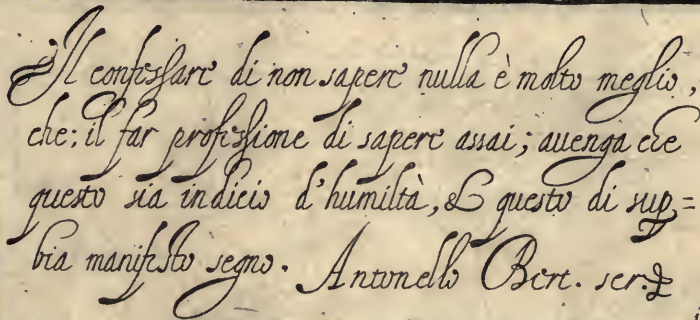 Il confessare di non sapere nulla è molto meglio,
che: il far professione di sapere assai; auenga che
questo sia indicio d'humiltà, & questo di sup=
bia manifesto segno. Antonello Bert. ser.